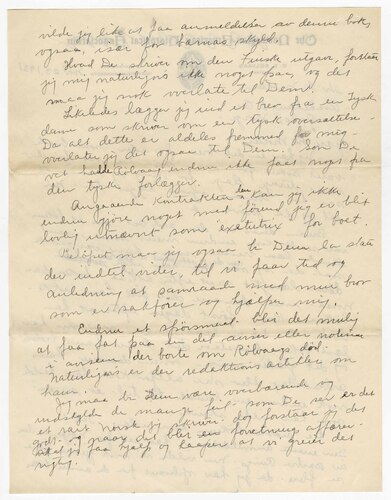 vilde jeg like at faa anmeldelser av denne bok,
ogsaa, især for barnas skyld.
Hvad De skriver om den Finske utgave, forstaar
jeg mig naturligvis ikke noget paa, og det
maa jeg nok overlate til Dem.
Likeledes lægger jeg ind et brev fra en tysk
dame som skriver om en tysk oversættelse.
Da alt dette er aldeles fremmed for mig
overlater jeg det ogsaa til Dem. Som De
vet hadde Rölvaag endnu ikke faat noget fra
den tyske forlægger.
Angaaende kontrakten, den kan jeg ikke
endnu gjöre noget med förend jeg er blit
lovlig utnævnt som exetutrix for boet.
maa jeg ogsaa be Dem la staa
der indtil vider, til vi faar tid og
anledning at samraade med min bror
som er sakförer og hjælper mig.
Endnu et spörsmaal. Blir det mulig
at faa fat paa en del aviser eller notiser
i aviserne der borte om Rölvaags död.
Naturligvis er der redaktionsartikler om
ham.
Jeg maa be Dem være overbærende og
undskylde de mange feil. Som De ser er det
et rart Norsk jeg skriver. Jeg forstaar jeg det
godt, og prøver det blir en forretnings affære.
Skal jeg faa hjælp og haaper at vi greier det
rigtig.